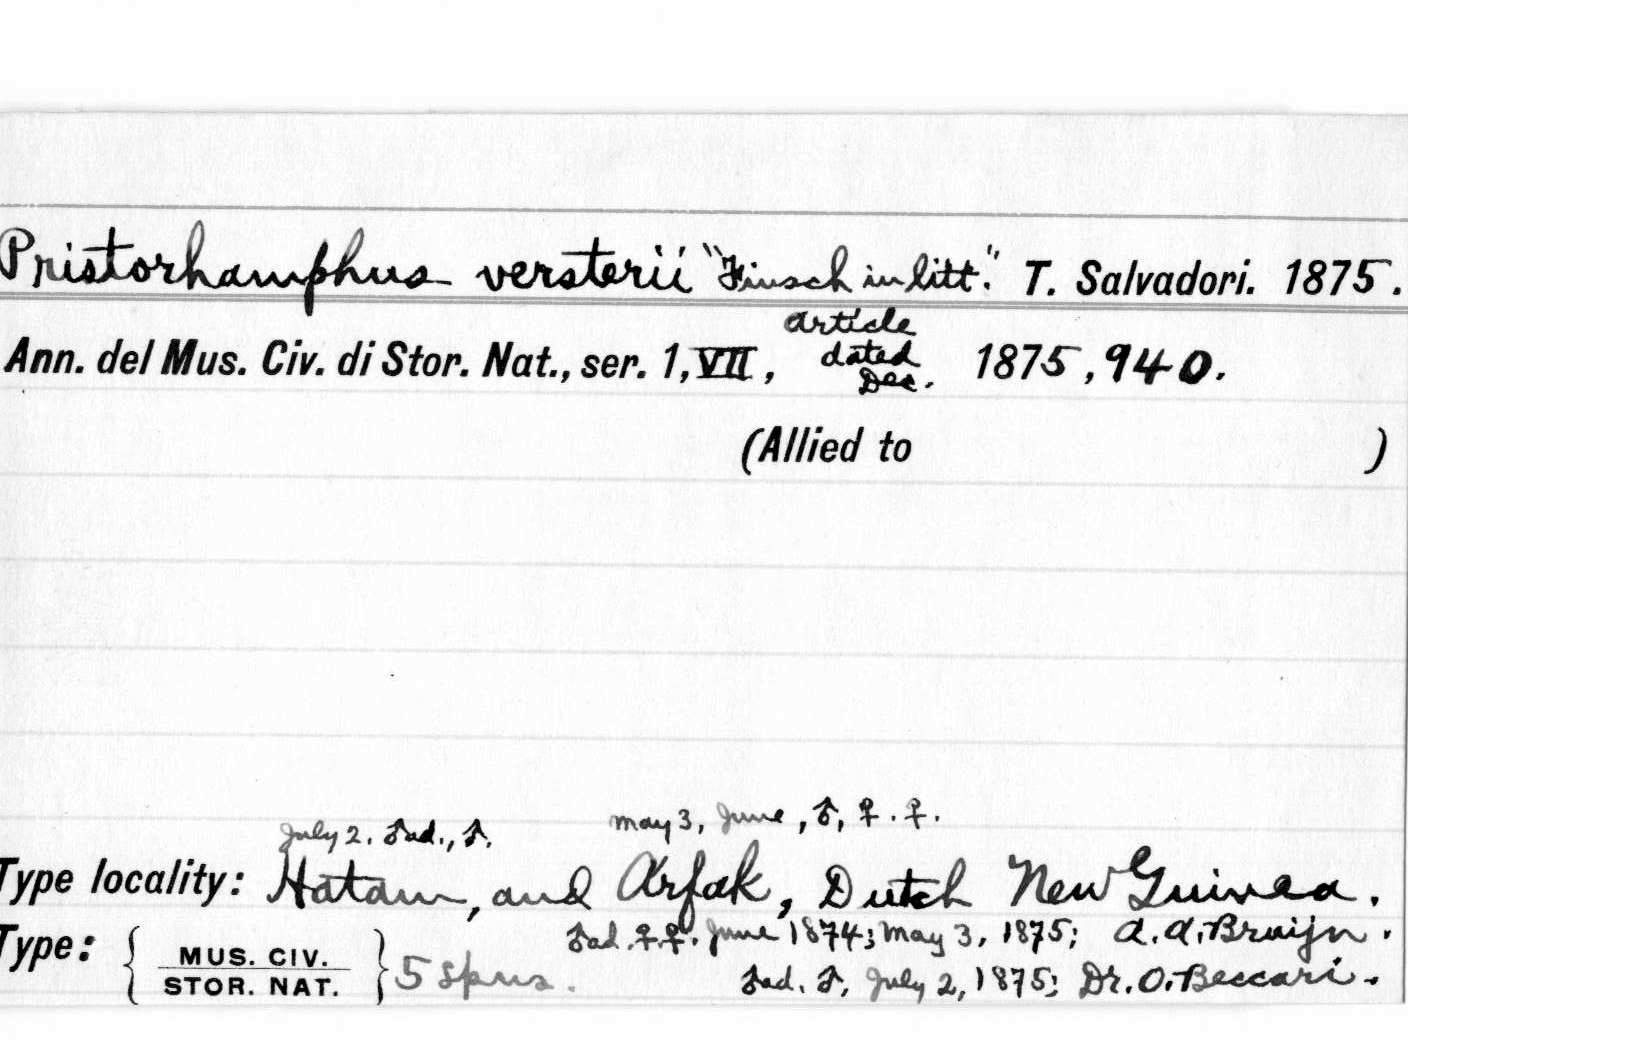 Pristorhamphus versterii "Finsch in litt." T. Salvadori. 1875.
Ann. del Mus. Civ. di Stor. Nat., ser. 1, VII, article dated Dec. 1875, 940.
(Allied to )
July 2. ♂ad., ♂. May 3, June, ♂, ♀. ♀.
Type locality: Hatam, and Arfak, Dutch New Guinea.
♂ad. ♀.♀. June 1874; May 3, 1875; A. A. Bruijn.
Type: { MUS. CIV. STOR. NAT. } 5 spns. ♂ad. ♂, July 2, 1875; Dr. O. Beccari.